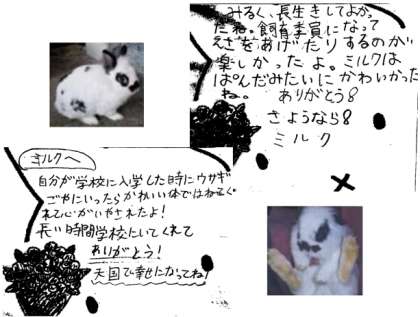 みるく、長生きしてよかっ
たね。飼育委員になって
えさをあげたりするのが
楽しかったよ。ミルクは
ぱんだみたいにかわいかった
ね。ありがとう
さようなら
ミルク
ミルクへ
自分が学校に入学した時にウサギ
ごやにいったらかわいい体ではねてく
れて心がいやされたよ!
長い時間学校にいてくれて
ありがとう!
天国で幸せになってね!